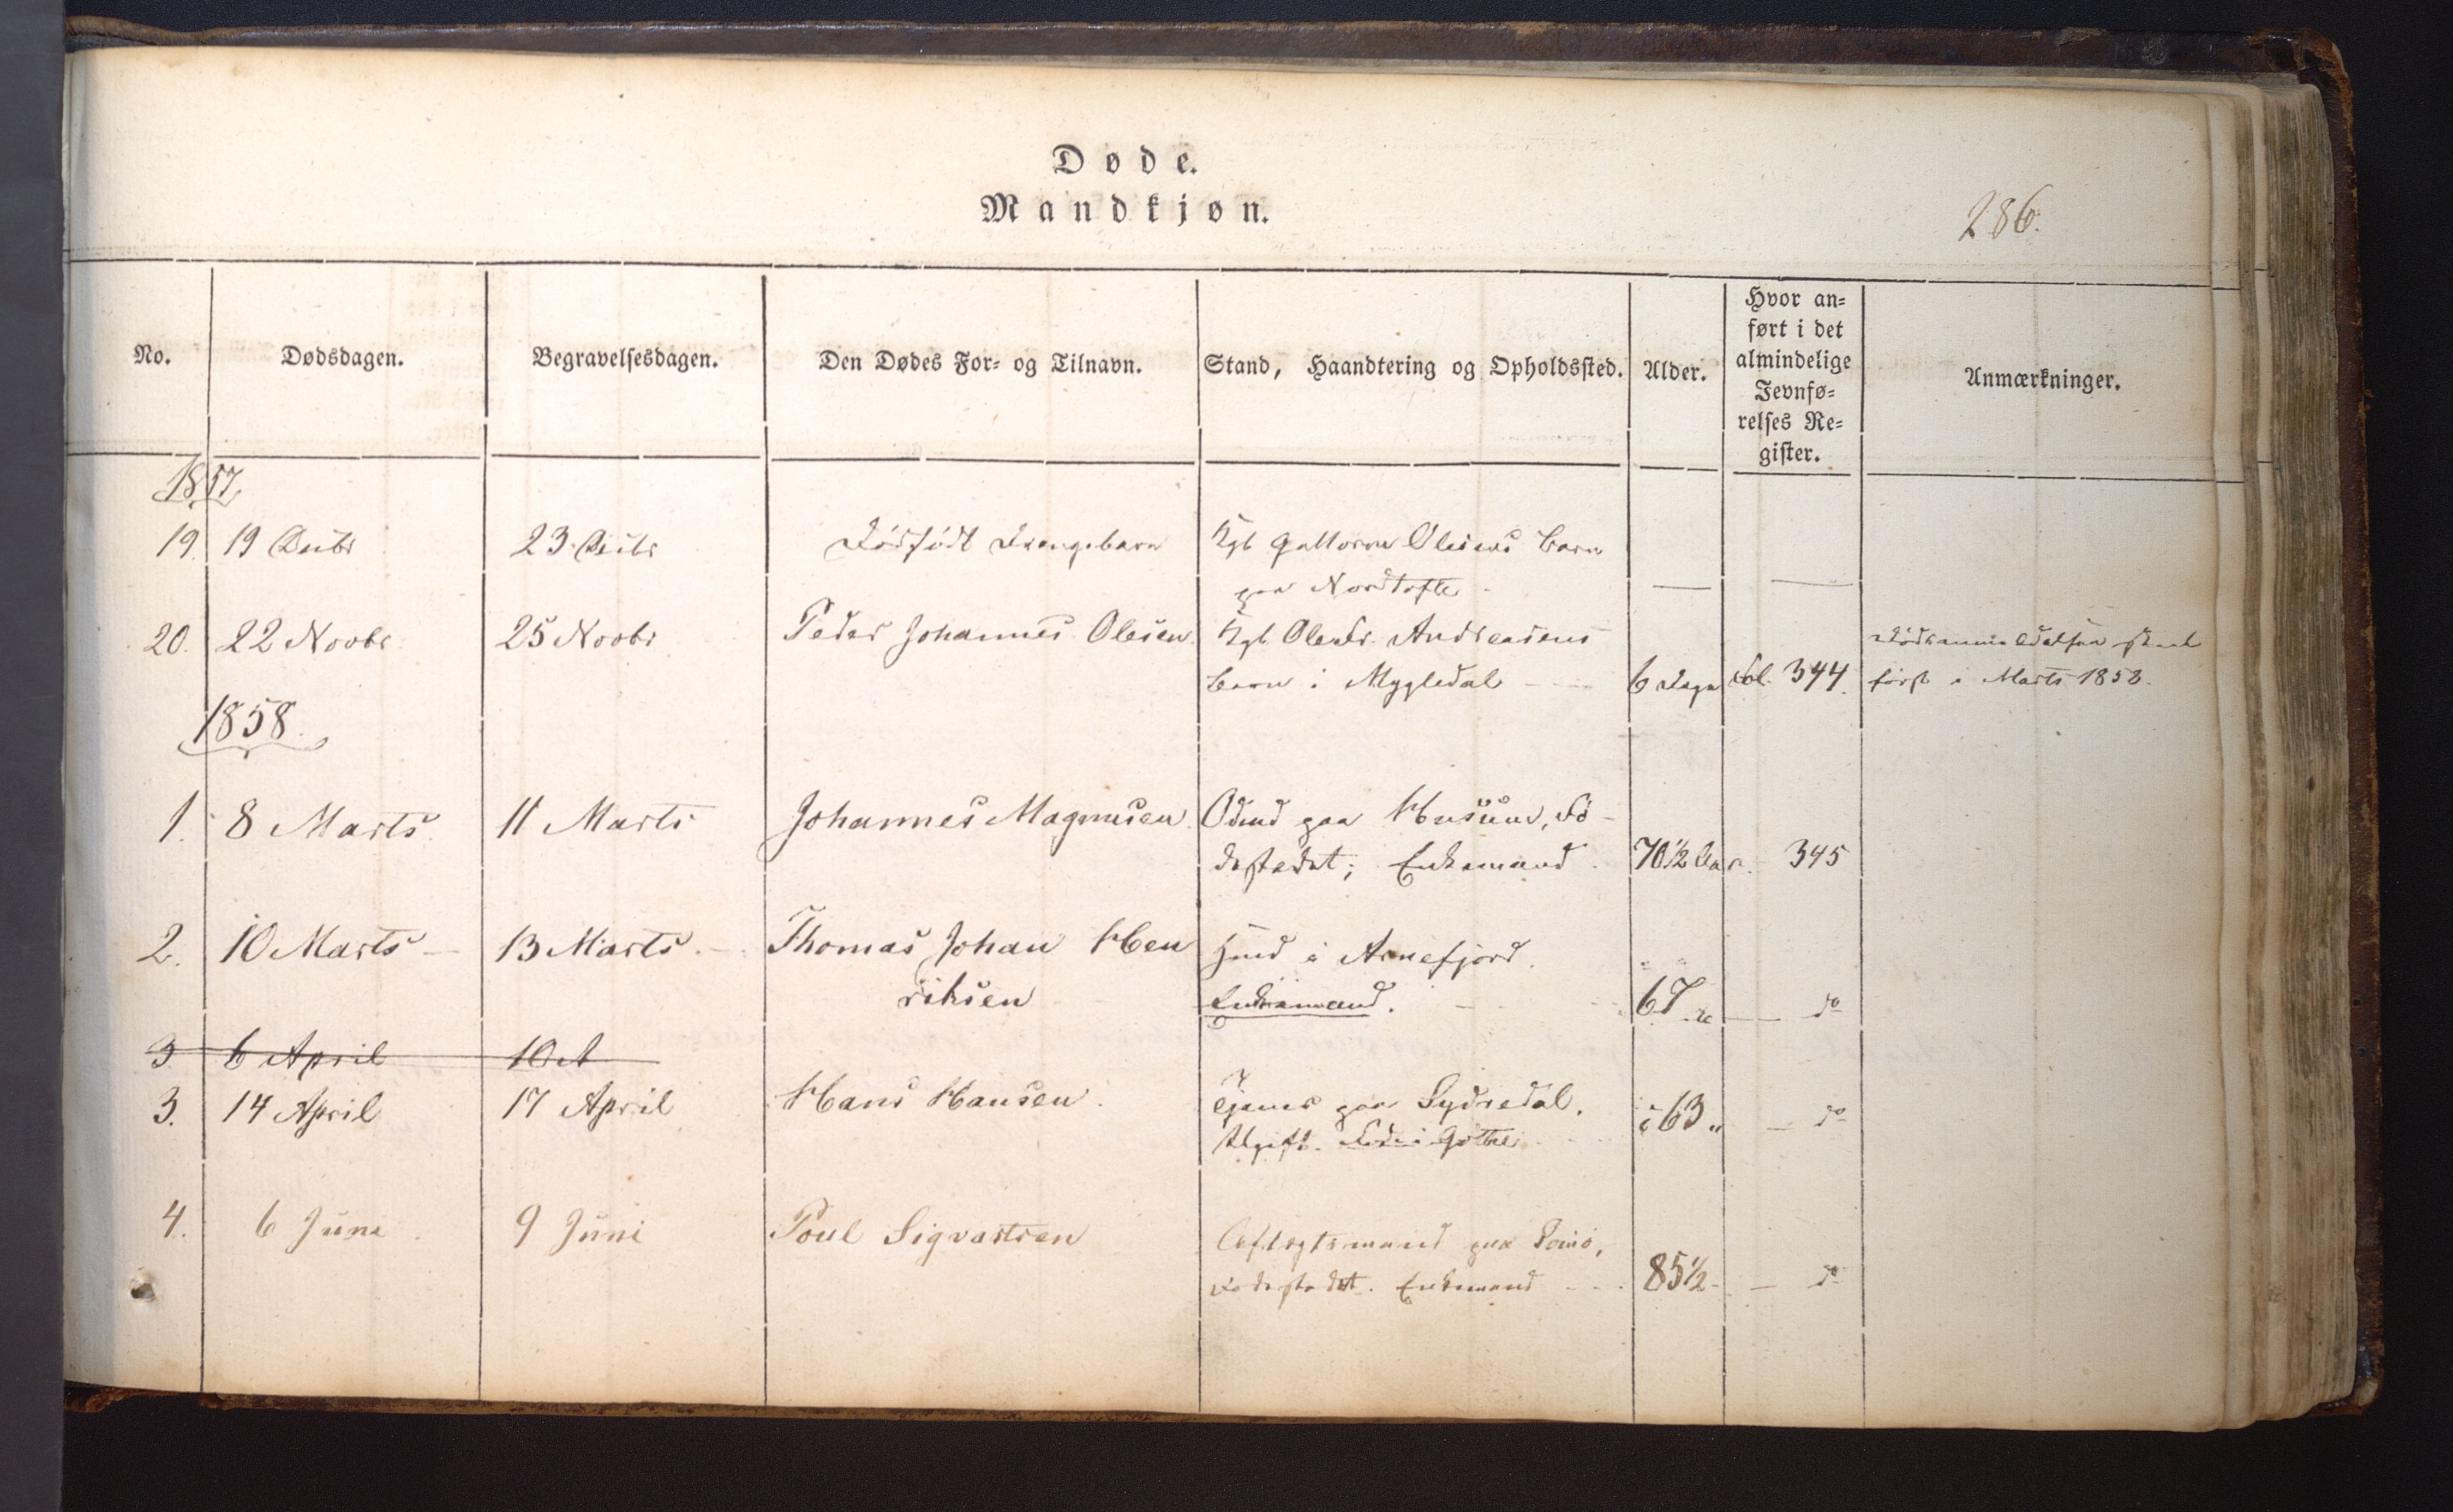 Døde.
Mandkjøn.
286.
No.
Dødsdagen.
Begravelsesdagen.
Den Dødes For- og Tilnavn.
Stand, Haandtering og Opholdssted.
Alder.
Hvor an-
ført i det
almindelige
Jevnfø-
relses Re-
gister.
Anmærkninger.
1857
19. 19 Octbr 23 Octbr Dødfødt Drengebarn Kgb Guttorm Olesens Barn
paa Nordtofte — —
20. 22 Novbr 25 Novbr Peder Johannes Olesen Kgb Oles Andreasens
Barn i Mygledal 6 Dage Fol. 344.
Dødsanmeldelsen
først i Marts 1858.
1858.
1. 8 Marts 11 Marts Johannes Magnusen Odmd paa Husum, Fø-
destedet; Enkemand 70½ Aar 345
2. 10 Marts 13 Marts Thomas Johan Hen
riksen
i Arnefjord.
Enkemand. 67 — do
3 6 April 10 A
3. 14 April 17 April Hans Hansen Tjener paa Sydredal.
Ugift. Født i Gøthe 63 " — do
4. 6 Juni 9 Juni Poul Sigvartsen Aftægtsmand paa
Fødestedet. Enkemand 85½ — do